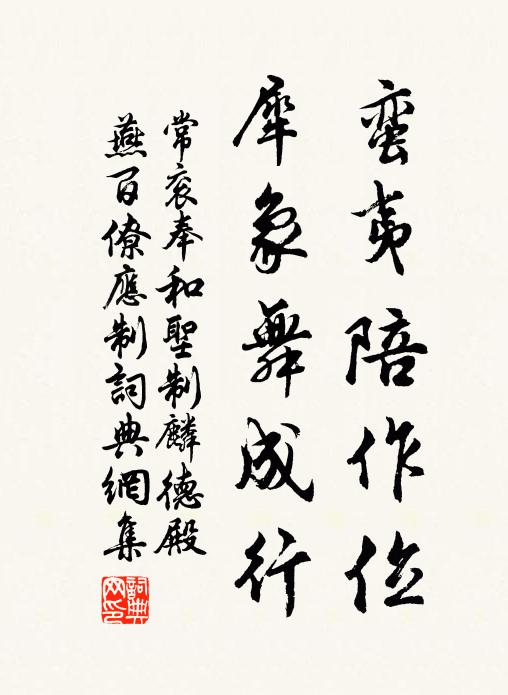 蛮夷陪作位
犀象舞成行
常衮奉和聖制麟德殿
燕百僚應制詞典網集
詞典
网印